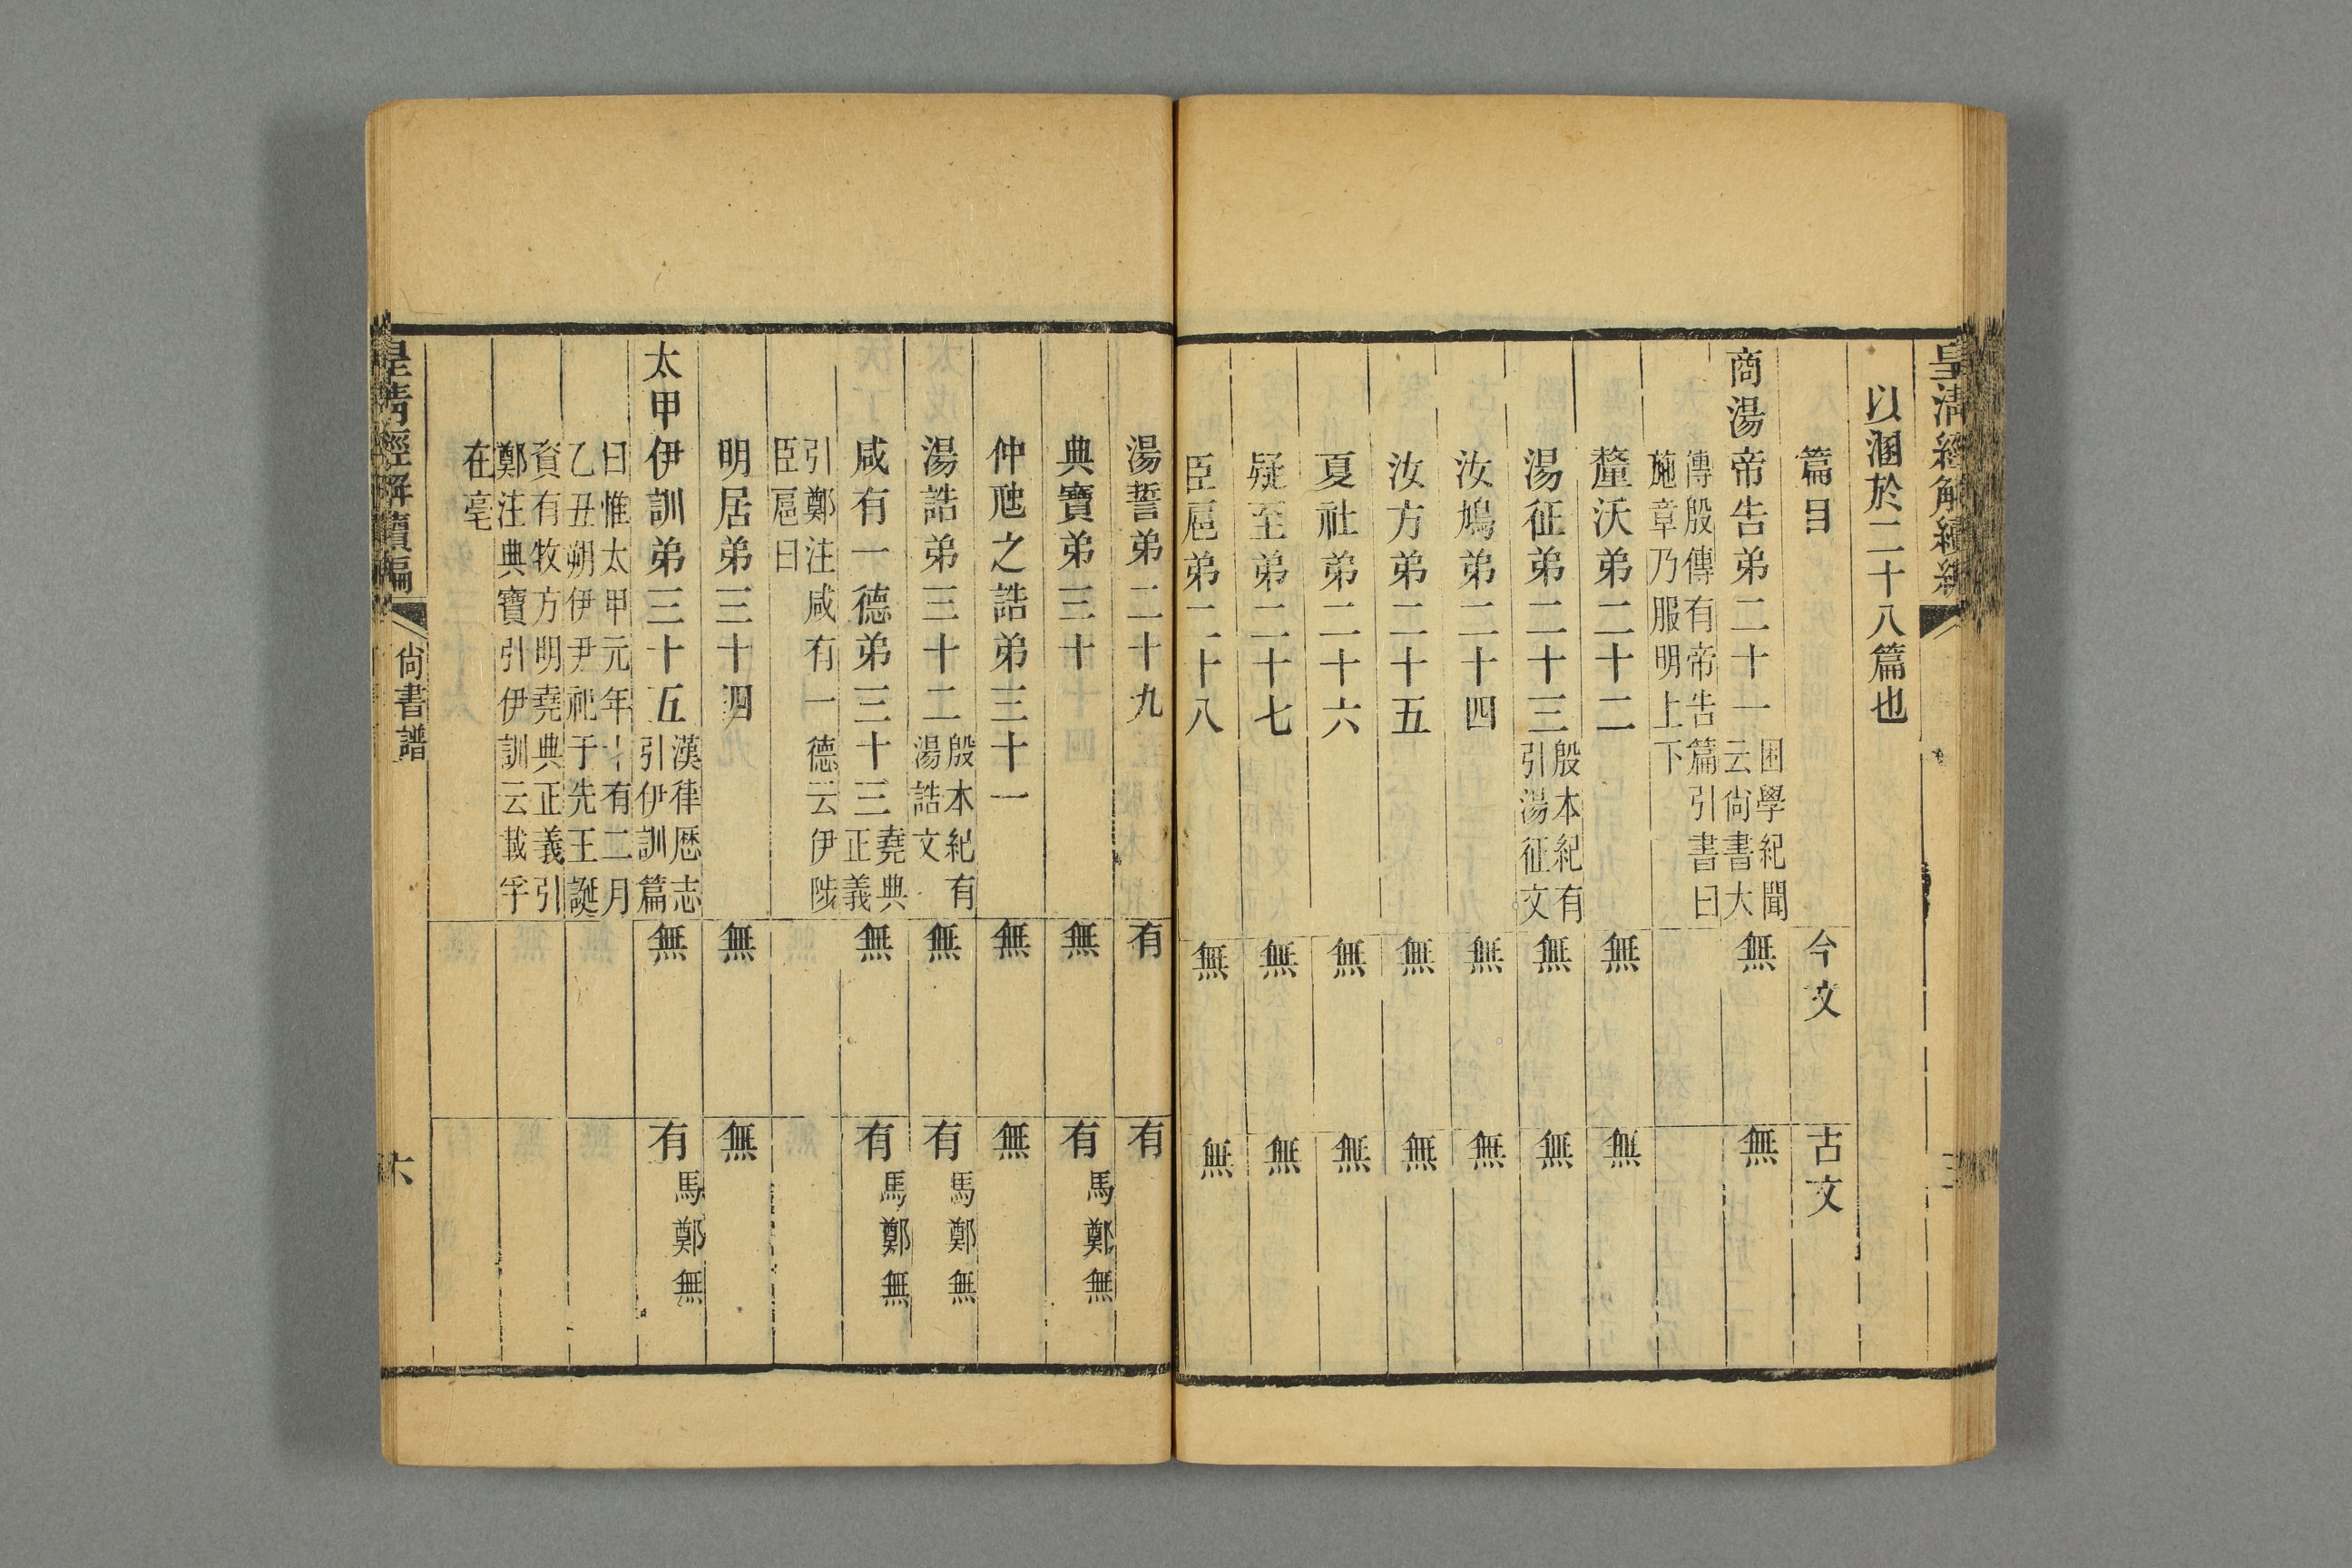 皇清經解續編
以溷於二十八篇也
篇目 今文 古文
商湯 帝告弟二十一 困學紀聞云尙書大 無 無
傳殷傳有帝告篇引書曰施章乃服明上下
釐沃弟二十二 無 無
湯征弟二十三 殷本紀有引湯征文 無 無
汝鳩弟二十四 無 無
汝方弟二十五 無 無
夏社弟二十六 無 無
疑至弟二十七 無 無
臣扈弟二十八 無 無
湯誓弟二十九 有 有
典寶弟三十 無 有 馬鄭無
仲虺之誥弟三十一 無 無
湯誥弟三十二 殷本紀有湯誥文 無 有 馬鄭無
咸有一德弟三十三 堯典正義 無 有 馬鄭無
引鄭注咸有一德云伊陟臣扈曰
明居弟三十四 無 無
太甲 伊訓弟三十五 漢律歷志引伊訓篇 無 有 馬鄭無
曰惟太甲元年十有二月乙丑朔伊尹祀于先王誕
資有牧方明堯典正義引鄭注典寶引伊訓云載孚
在亳
皇清經解續編 尙書譜 六